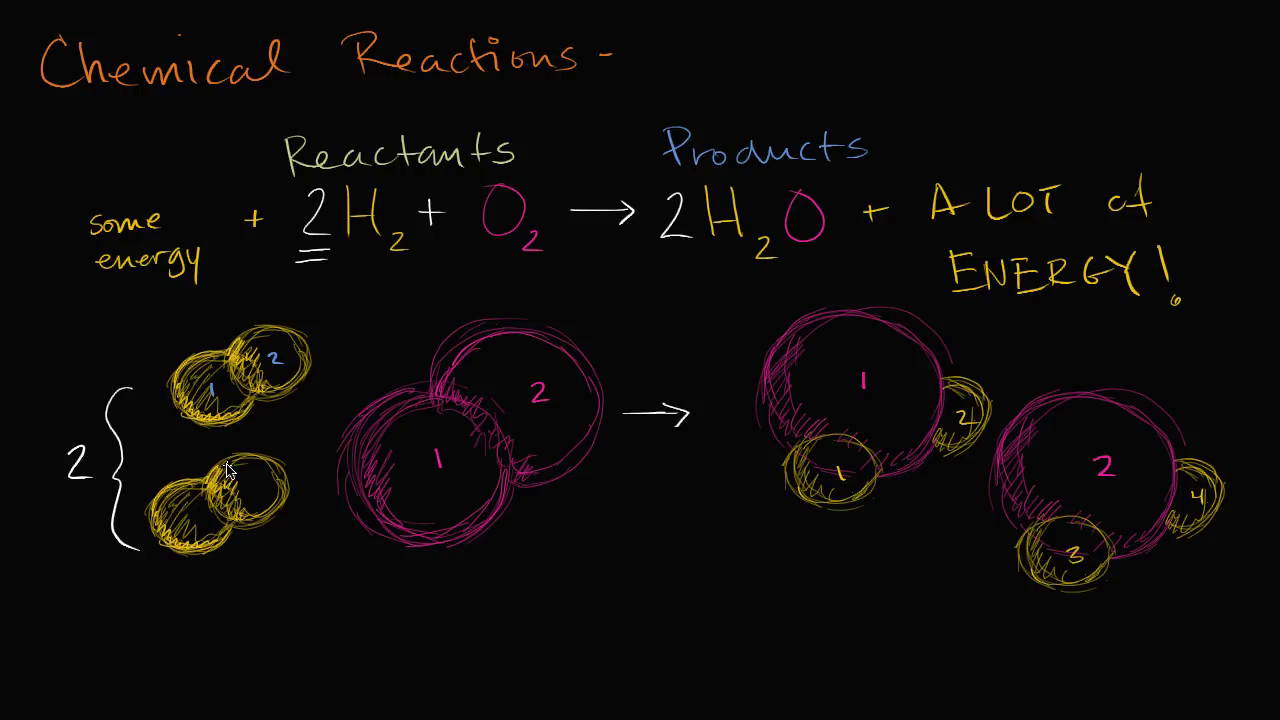 Chemical Reactions -
Reactants Products
some energy + 2H₂ + O₂ → 2H₂O + A LOT of ENERGY!
1 2
2
1 2
→
1 2
1
2
3 4